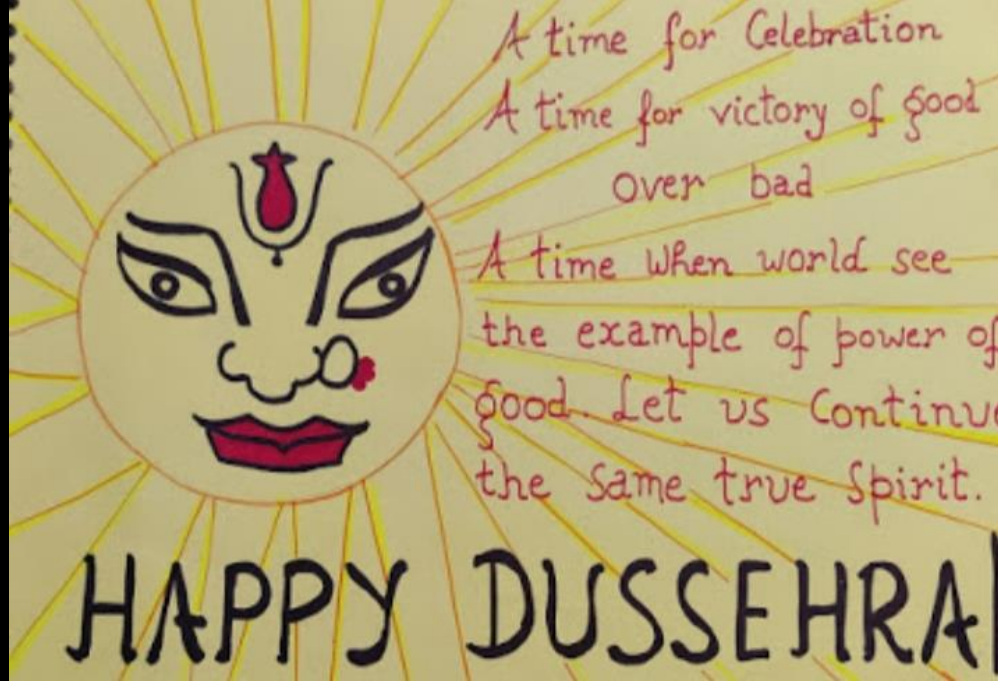 A time for Celebration
A time for victory of good
over bad
A time when world see
the example of power of
good. Let us Continue
the same true spirit.
HAPPY DUSSEHRA